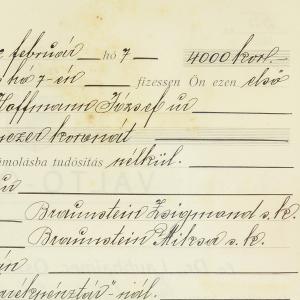 február hó 7 4000 kor.
hó 7-én fizessen Ön ezen első
Hoffmann József úr
ezer koronát
ámolásba tudósítás nélkül.
úr
VÁLTÓ
Braunstein Zsigmond s.k.
Braunstein Miksa s.k.
án
arékpénztár"-nál.